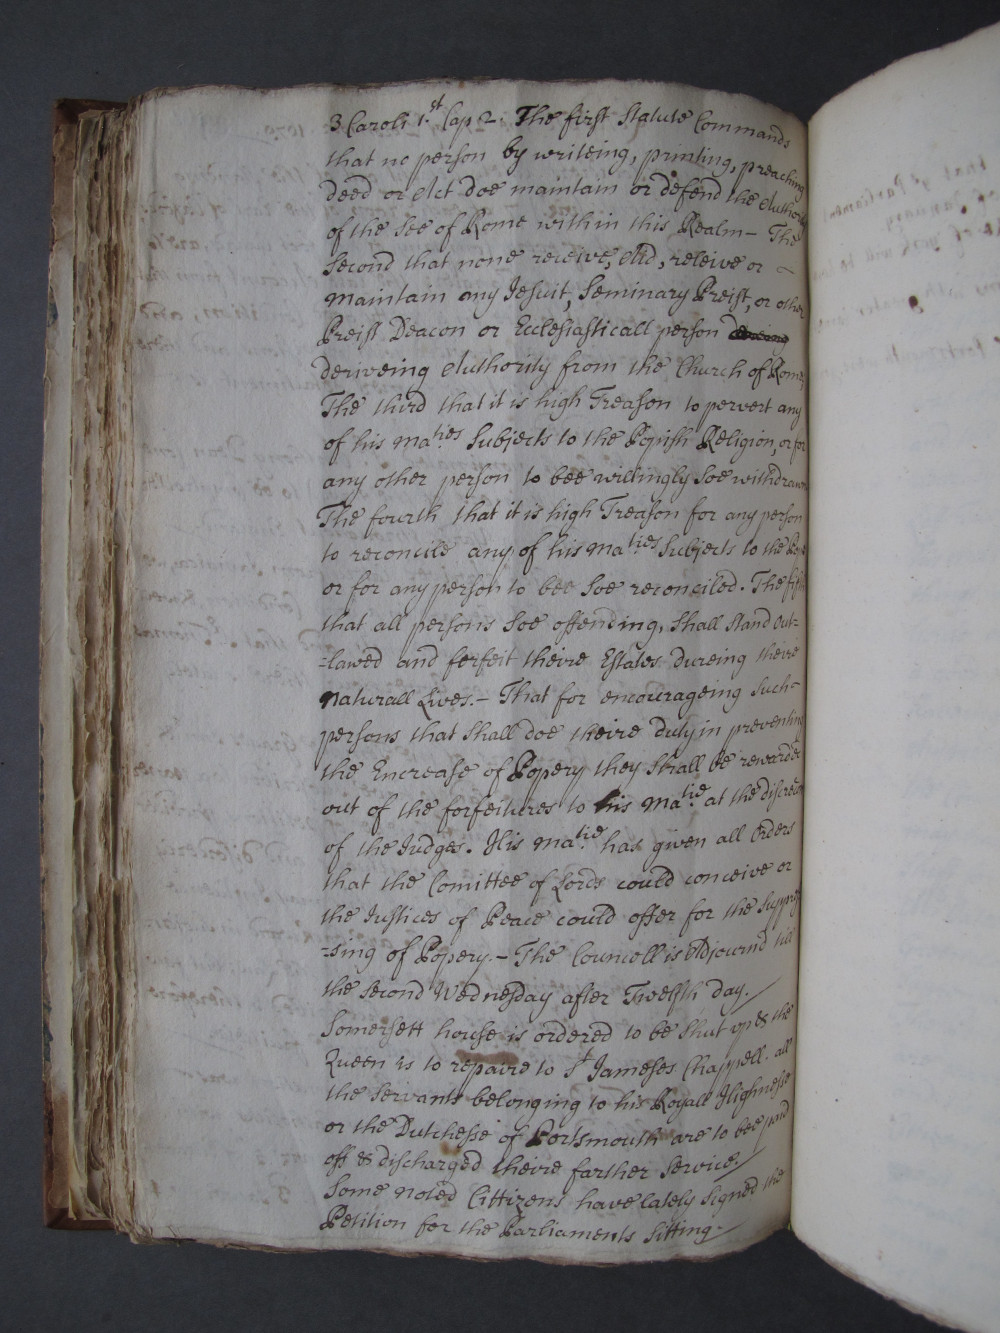 3 Caroli 1.st Cap 2. The first Statute Commands
that no person by writeing, printing, preaching
deed or Act doe maintain or defend the Authority
of the See of Rome within this Realm - The
Second that none receive, Aid, releive or -
maintain any Jesuit, Seminary Preist, or other
Preist Deacon or Ecclesiasticall person
deriveing Authority from the Church of Rome,
The third that it is high Treason to pervert any
of his ma:ties Subjects to the Popish Religion, or for
any other person to bee willingly Soe withdrawn
The fourth that it is high Treason for any person
to reconcile any of his ma:ties Subjects to the Pope
or for any person to bee Soe reconciled. The fifth
that all persons Soe offending, Shall Stand out=
=lawed and forfeit theire Estates dureing theire
naturall Lives. - That for encourageing Such -
persons that Shall doe theire duty in preventing
the Encrease of Popery they Shall be rewarded
out of the forfeitures to his ma:tie at the discretion
of the Judges. His ma:tie has given all Orders
that the Comittee of Lords could conceive or
the Justices of Peace could offer for the Suppres
=sing of Popery. - The Councell is Adjournd till
the Second Wednesday after Twelfth day. /
Somersett house is ordered to be Shut up & the
Queen is to repaire to St Jameses Chappell. all
the Servants belonging to his Royall Highnesse
or the Dutchesse of Portsmouth are to bee paid
off & discharged theire farther Service. /
Some noted Cittizens have lately Signed the
Petition for the Parliaments Sitting - /
that ye Parliament
of January